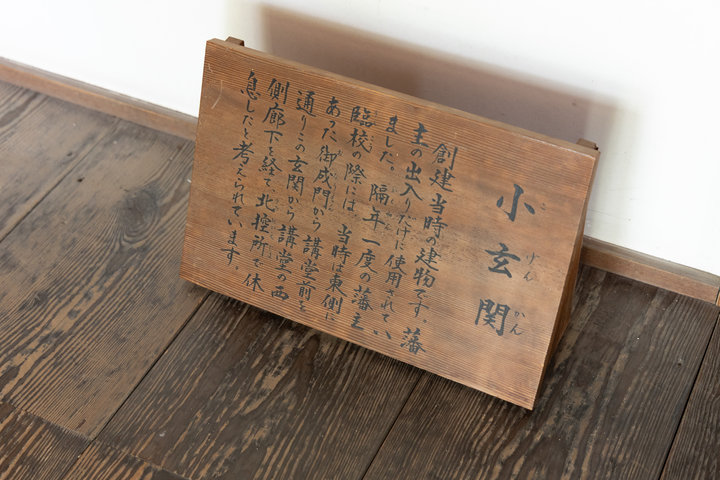 小玄関
こげんかん
創建当時の建物です。藩
主の出入りだけに使用されてい
ました。隔年一度の藩主
臨校の際には、当時は東側に
あった御成門から講堂前を
通りこの玄関から講堂の西
側廊下を経て、北控所で休
息したと考えられています。